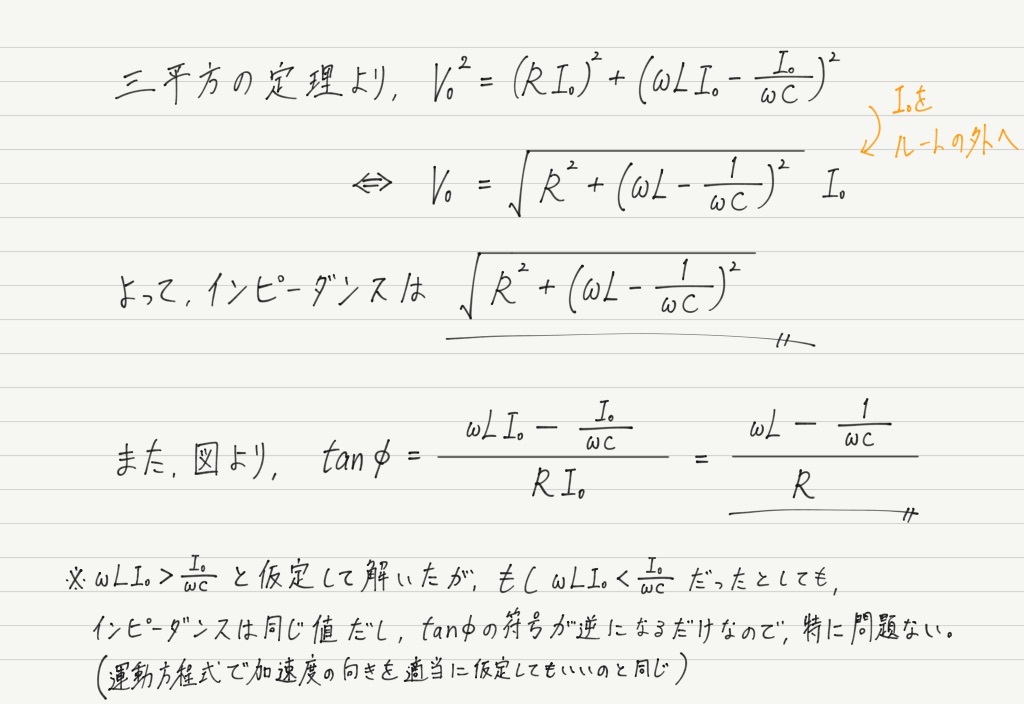 三平方の定理より, V₀² = (RI₀)² + (ωLI₀ - I₀/ωC)²
I₀を
ルートの外へ
⇔ V₀ = √(R² + (ωL - 1/ωC)²) I₀
よって, インピーダンスは √(R² + (ωL - 1/ωC)²)
また, 図より, tanφ = (ωLI₀ - I₀/ωC)/(RI₀) = (ωL - 1/ωC)/R
※ ωLI₀ > I₀/ωC と仮定して解いたが, もし ωLI₀ < I₀/ωC だったとしても,
インピーダンスは同じ値だし, tanφの符号が逆になるだけなので, 特に問題ない。
(運動方程式で加速度の向きを適当に仮定してもいいのと同じ)